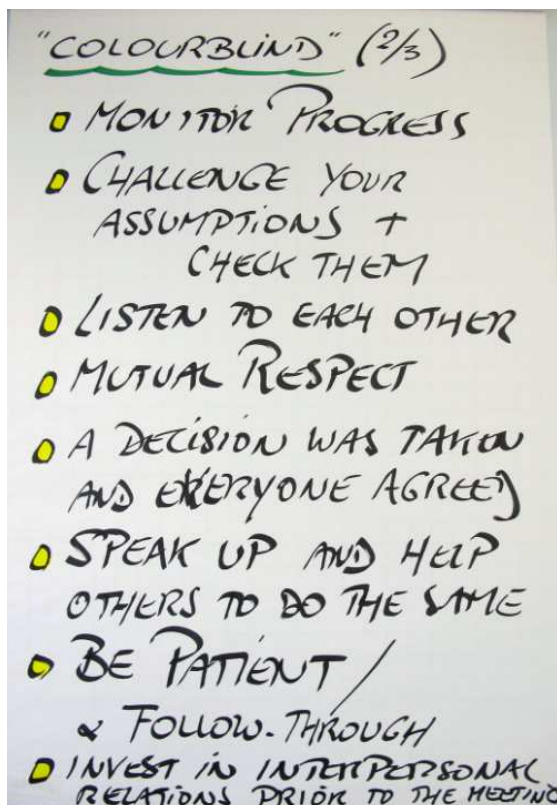 "COLOURBLIND" (2/3)
MONITOR PROGRESS
CHALLENGE YOUR
ASSUMPTIONS +
CHECK THEM
LISTEN TO EACH OTHER
MUTUAL RESPECT
A DECISION WAS TAKEN
AND EVERYONE AGREED
SPEAK UP AND HELP
OTHERS TO DO THE SAME
BE PATIENT /
& FOLLOW-THROUGH
INVEST IN INTERPERSONAL
RELATIONS PRIOR TO THE MEETING